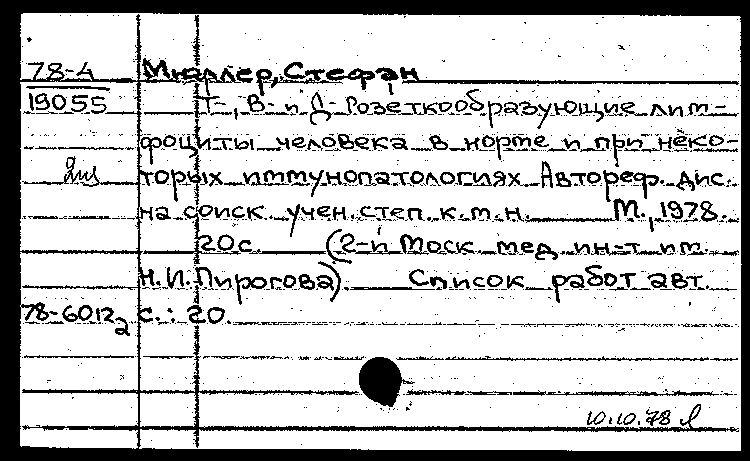 78-4 Мюллер, Стефан
19055 Т-, В- и Д-Розеткообразующие лим-
фоциты человека в норме и при неко-
торых иммунопатологиях Автореф. дис.
на соиск. учен. степ. к.м.н. М., 1978.
20с. (2-й Моск. мед. ин-т им.
Н.И.Пирогова). Список работ авт.
78-60122 с.: 20.
10.10.78